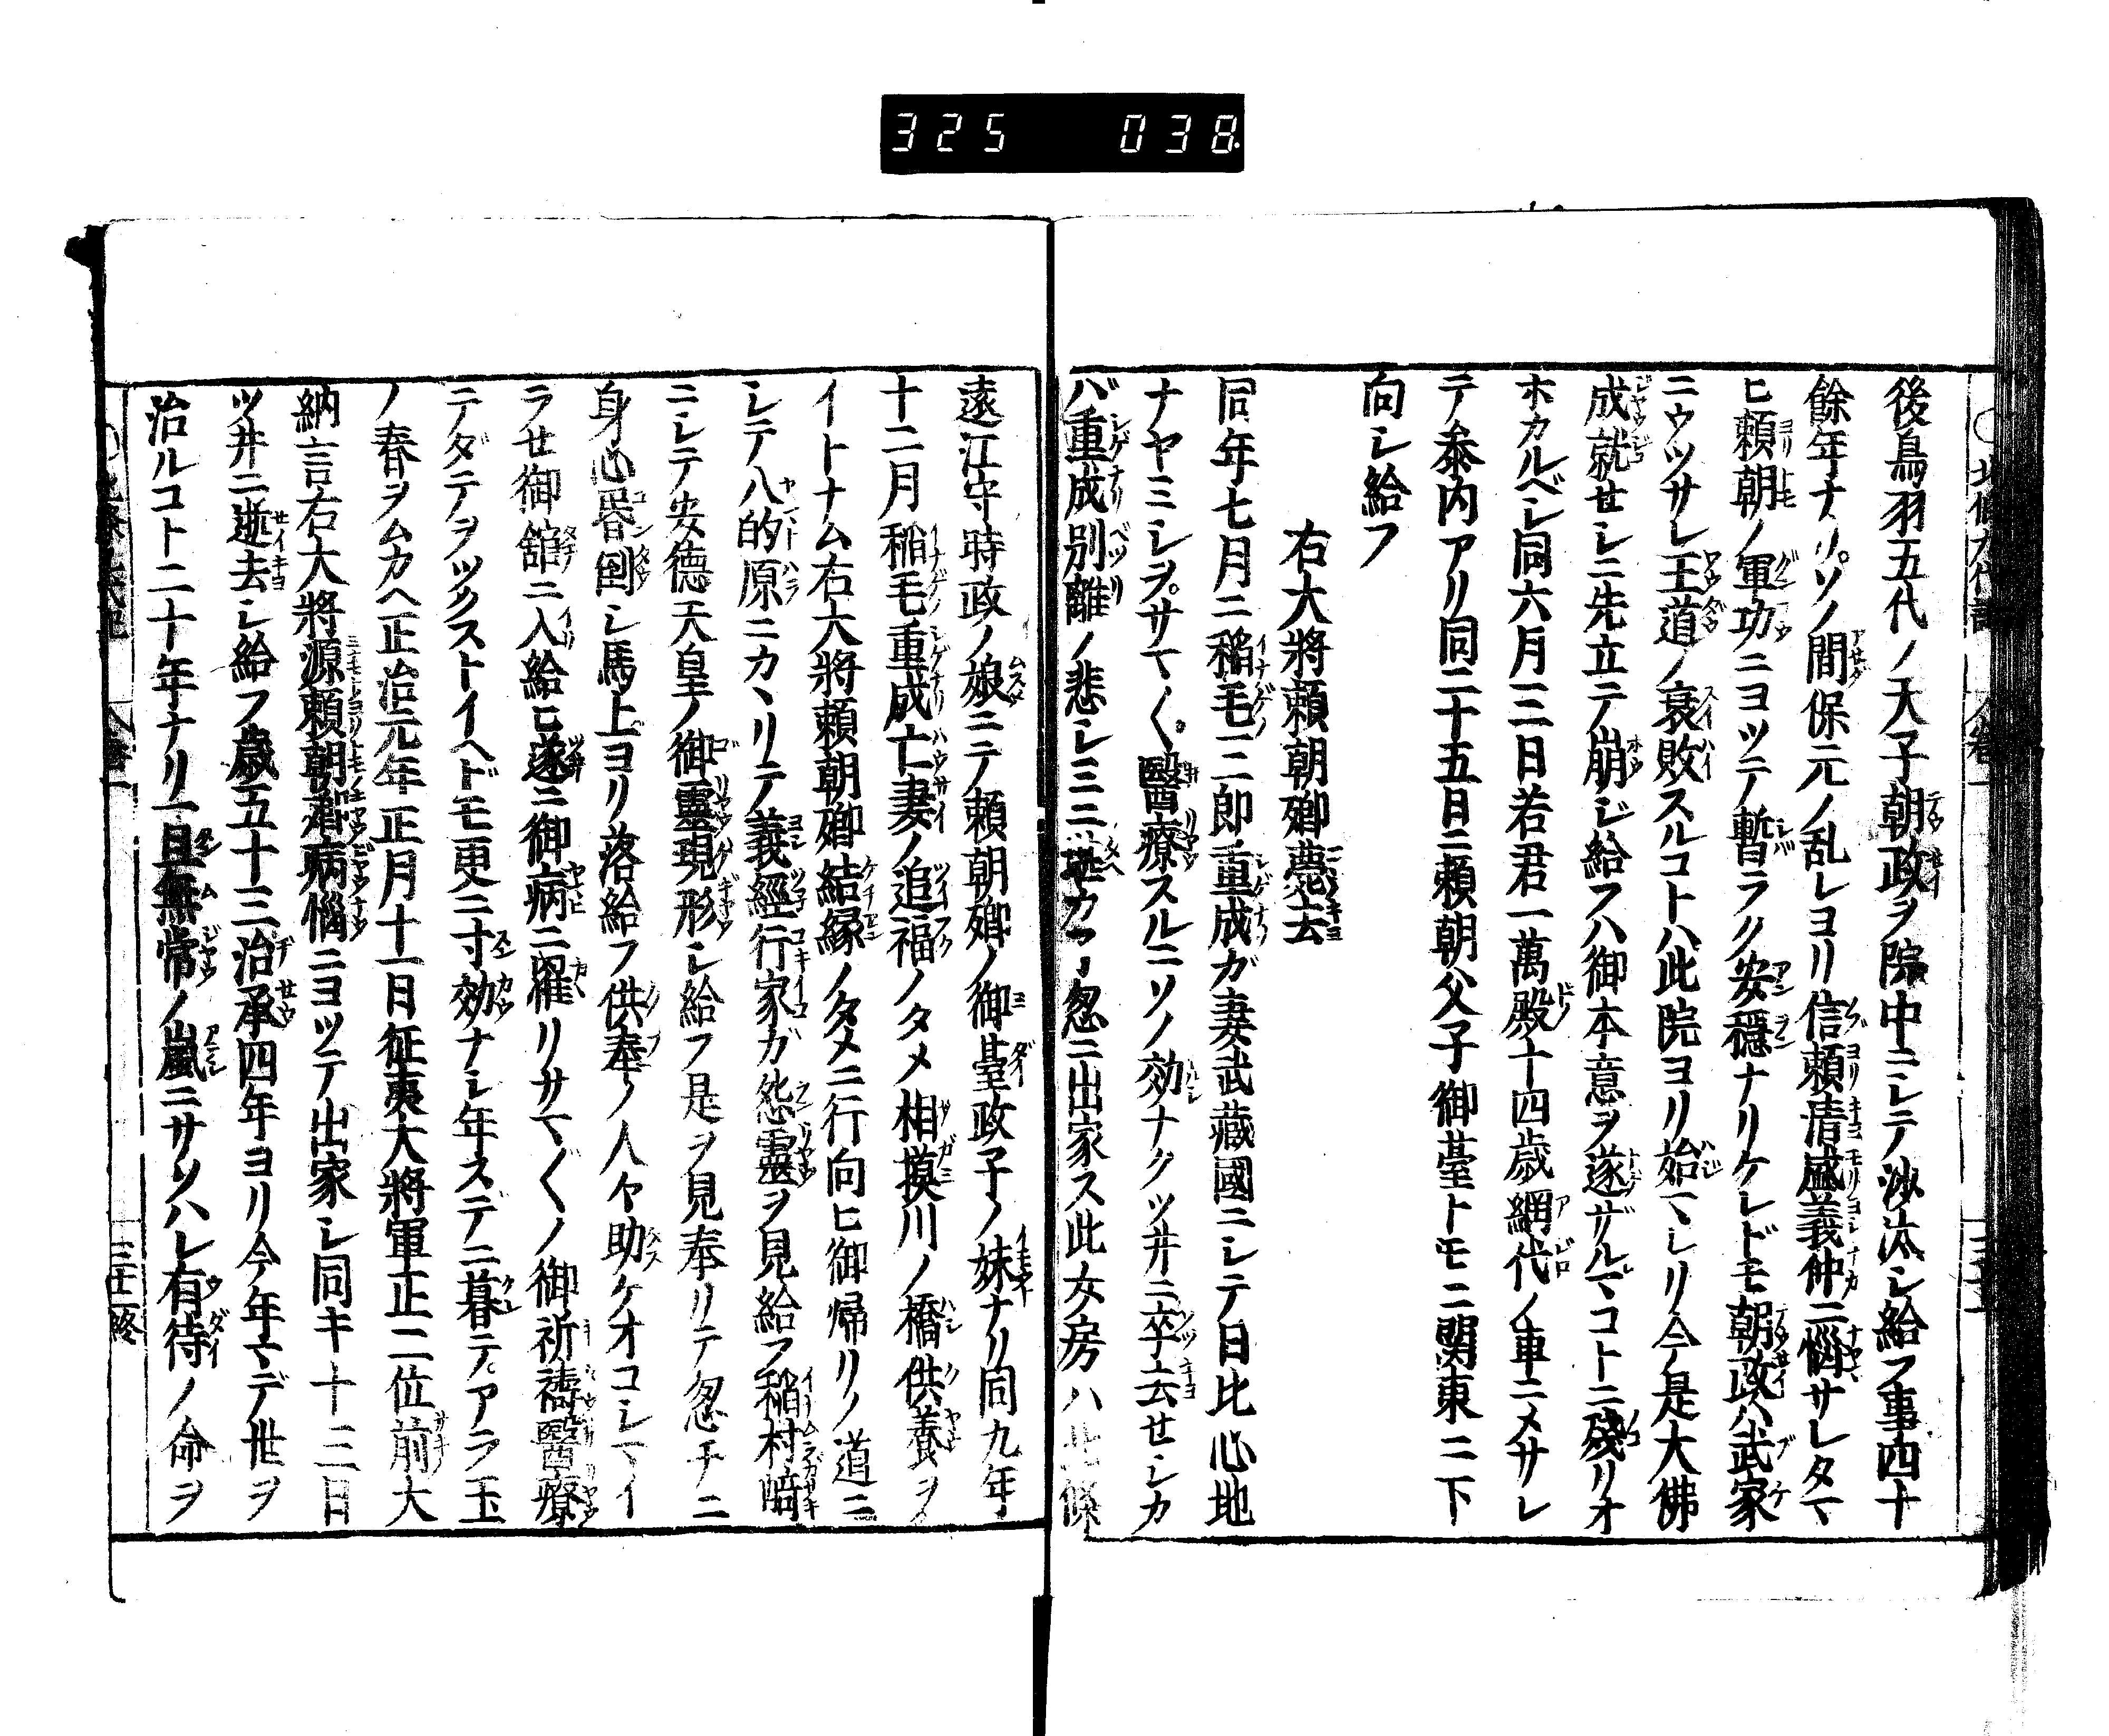 325 038
後鳥羽五代ノ天子朝政ヲ院中ニシテ沙汰シ給フ事四十
餘年ナリ。ソノ間保元ノ乱レヨリ信頼清盛義仲ニ惱サレタマ
ヒ頼朝ノ軍功ニヨツテ暫ラク安穏ナリケレドモ朝政ハ武家
ニウツサレ王道ノ衰敗スルコトハ此院ヨリ始マレリ今是大佛
成就セシニ先立テ崩ジ給フハ御本意ヲ遂ザルコトニ殘リオ
ホカルベシ同六月三日若君一萬殿十四歳網代ノ車ニメサレ
テ参内アリ同二十五日ニ頼朝父子御臺トモニ関東ニ下
向シ給フ
右大將頼朝卿薨去
同年七月ニ稲毛三郎重成ガ妻武藏國ニシテ日比心地
ナヤミシヲ。サマ〱醫療スルニソノ効ナクツ井ニ卒去セシカ
バ重成別離ノ悲シミニ堪カ子忽ニ出家ス此女房ハ北條
遠江守時政ノ娘ニテ頼朝卿ノ御臺政子ノ妹ナリ同九年
十二月稲毛重成亡妻ノ追福ノタメ相摸川ノ橋供養ヲ
イトナム右大將頼朝卿結縁ノタメニ行向ヒ御帰リノ道ニ
シテ八的原ニカヽリテ義經行家ガ怨靈ヲ見給フ稲村﨑
ニシテ安徳天皇ノ御靈現形シ給フ是ヲ見奉リテ忽チニ
身心昏倒シ馬上ヨリ落給フ供奉ノ人々助ケオコシマイ
ラセ御舘ニ入給ヒ遂ニ御病ニ罹リサマ〲ノ御祈禱醫療
テダテヲツクストイヘドモ更ニ寸効ナシ年スデニ暮テアラ玉
ノ春ヲムカヘ正治元年正月十一日征夷大將軍正二位前大
納言右大將源頼朝卿病惱ニヨツテ出家シ同キ十三日
ツ井ニ逝去シ給フ歳五十三治承四年ヨリ今年マデ世ヲ
治ルコト二十年ナリ一旦無常ノ嵐ニサソハレ有待ノ命ヲ